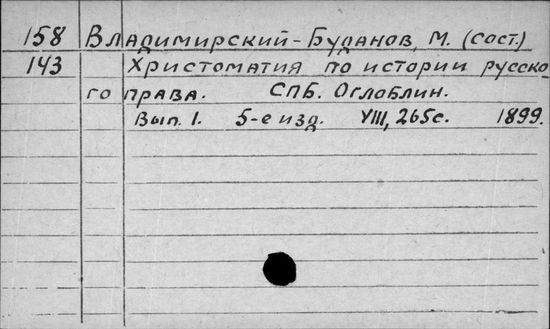 158 Владимирский-Буданов, М. (сост.)
143 Христоматия по истории русско-
го права. СПБ. Оглоблин.
Вып. 1. 5-е изд. VIII, 265с. 1899.